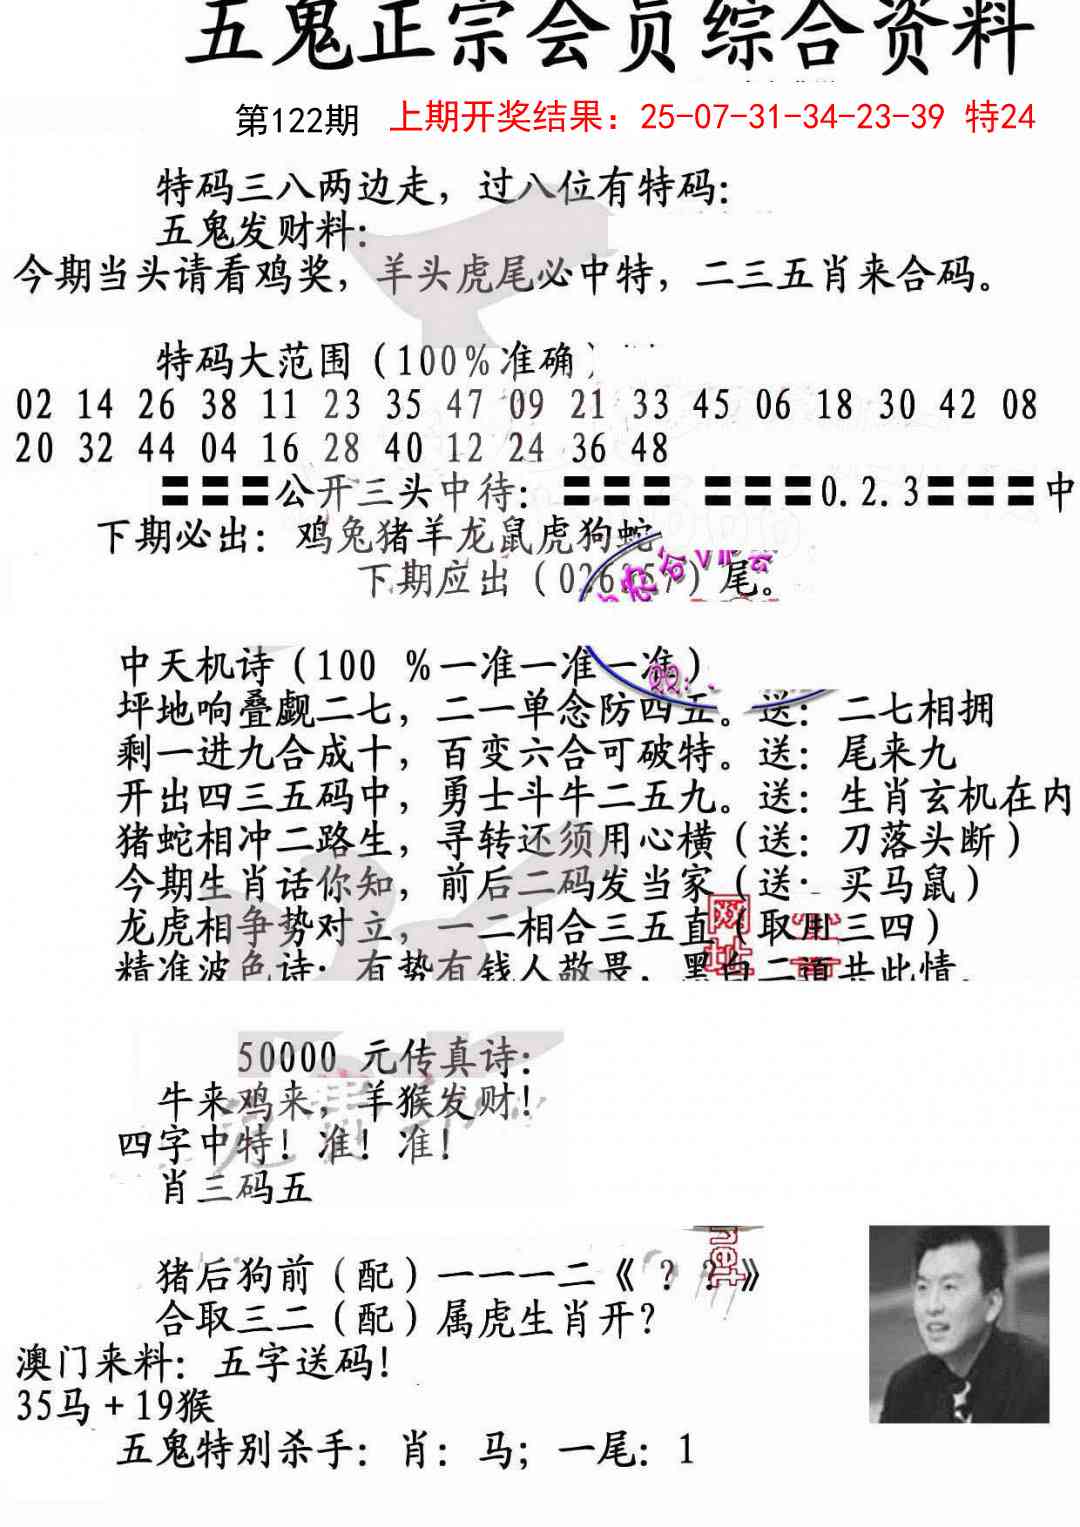 五鬼正宗会员综合资料
第122期 上期开奖结果：25-07-31-34-23-39 特24
特码三八两边走，过八位有特码：
五鬼发财料：
今期当头请看鸡奖，羊头虎尾必中特，二三五肖来合码。
特码大范围（100%准确）
02 14 26 38 11 23 35 47 09 21 33 45 06 18 30 42 08
20 32 44 04 16 28 40 12 24 36 48
〓〓〓公开三头中待：〓〓〓 〓〓〓0.2.3〓〓〓中
下期必出：鸡兔猪羊龙鼠虎狗蛇
下期应出（026 57）尾。
中天机诗（100 %一准一准一准）
坪地响叠觑二七，二一单念防四五。送：二七相拥
剩一进九合成十，百变六合可破特。送：尾来九
开出四三五码中，勇士斗牛二五九。送：生肖玄机在内
猪蛇相冲二路生，寻转还须用心横（送：刀落头断）
今期生肖话你知，前后二码发当家（送：买马鼠）
龙虎相争势对立，一二相合三五直（取用三四）
精准波色诗：有势有钱人敬畏，黑白二道共此情。
50000 元传真诗：
牛来鸡来，羊猴发财！
四字中特！准！准！
肖三码五
猪后狗前（配）一一一二《？？》
合取三二（配）属虎生肖开？
澳门来料：五字送码！
35马+19猴
五鬼特别杀手：肖：马；一尾：1
网址
net